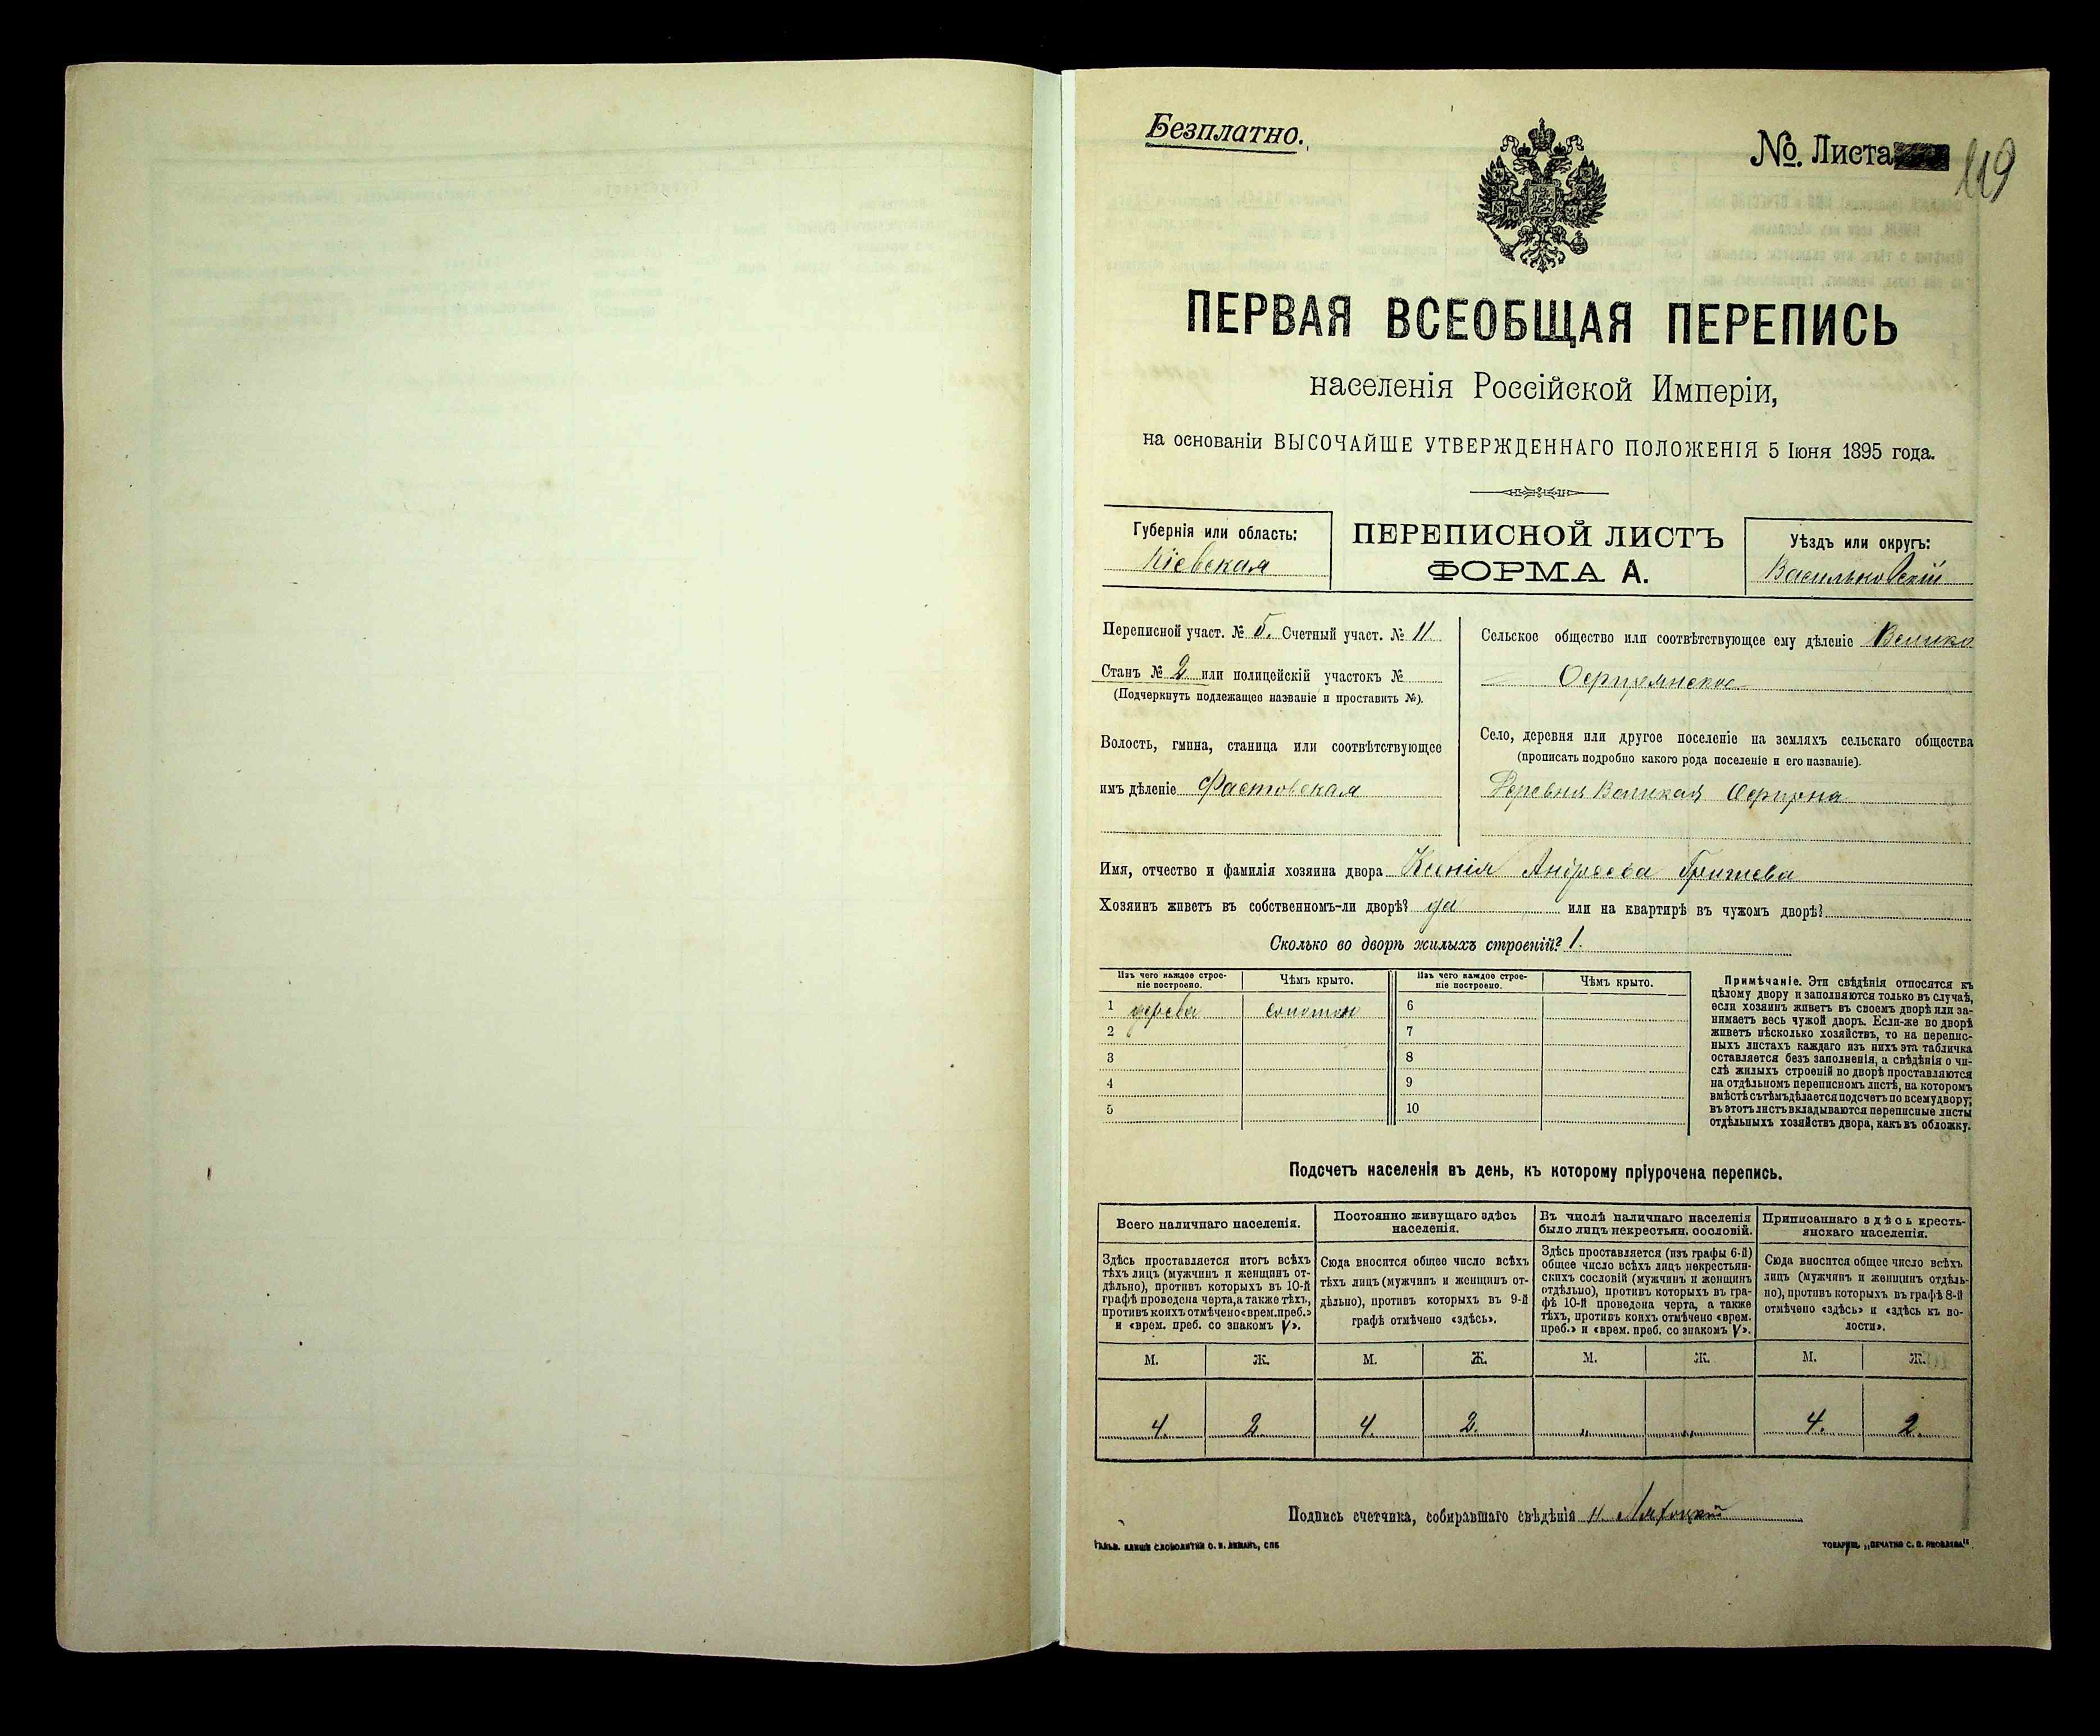 Безплатно.
№. Листа 119
ПЕРВАЯ ВСЕОБЩАЯ ПЕРЕПИСЬ
населенія Россійской Имперіи,
на основаніи ВЫСОЧАЙШЕ УТВЕРЖДЕННАГО ПОЛОЖЕНІЯ 5 Іюня 1895 года.
Губернія или область:
Кіевская
ПЕРЕПИСНОЙ ЛИСТЪ
ФОРМА А.
Уѣздъ или округъ:
Васильковскій
Переписной участ. № 5. Счетный участ. № 11
Станъ № 2 или полицейскій участокъ №
(Подчеркнуть подлежащее названіе и проставить №).
Волость, гмина, станица или соотвѣтствующее
имъ дѣленіе Фастовская
Сельское общество или соотвѣтствующее ему дѣленіе Велико
Офирнянское
Село, деревня или другое поселеніе на земляхъ сельскаго общества
(прописать подробно какого рода поселеніе и его названіе).
Деревня Великая Офирна
Имя, отчество и фамилія хозяина двора Ксенія Андреева
Хозяинъ живетъ въ собственномъ-ли дворѣ? да или на квартирѣ въ чужомъ дворѣ?
Сколько во дворѣ жилыхъ строеній? 1.
Изъ чего каждое строе-
ніе построено.
Чѣмъ крыто.
Изъ чего каждое строе-
ніе построено.
Чѣмъ крыто.
1 дерева соломою 6
2 7
3 8
4 9
5 10
Примѣчаніе. Эти свѣдѣнія относятся къ
цѣлому двору и заполняются только въ случаѣ,
если хозяинъ живетъ въ своемъ дворѣ или за-
нимаетъ весь чужой дворъ. Если-же во дворѣ
живетъ нѣсколько хозяйствъ, то на перепис-
ныхъ листахъ каждаго изъ нихъ эта табличка
оставляется безъ заполненія, а свѣдѣнія о чи-
слѣ жилыхъ строеній во дворѣ проставляются
на отдѣльномъ переписномъ листѣ, на которомъ
вмѣстѣ съ тѣмъ дѣлается подсчетъ по всему двору;
въ этотъ листъ вкладываются переписные листы
отдѣльныхъ хозяйствъ двора, какъ въ обложку.
Подсчетъ населенія въ день, къ которому пріурочена перепись.
Всего наличнаго населенія.
Здѣсь проставляется итогъ всѣхъ
тѣхъ лицъ (мужчинъ и женщинъ от-
дѣльно), противъ которыхъ въ 10-й
графѣ проведена черта, а также тѣхъ,
противъ коихъ отмѣчено «врем. преб.»
и «врем. преб. со знакомъ V».
Постоянно живущаго здѣсь
населенія.
Сюда вносится общее число всѣхъ
тѣхъ лицъ (мужчинъ и женщинъ от-
дѣльно), противъ которыхъ въ 9-й
графѣ отмѣчено «здѣсь».
Въ числѣ наличнаго населенія
было лицъ некрестьян. сословій.
Здѣсь проставляется (изъ графы 6-й)
общее число всѣхъ лицъ некрестьян-
скихъ сословій (мужчинъ и женщинъ
отдѣльно), противъ которыхъ въ гра-
фѣ 10-й проведена черта, а также
тѣхъ, противъ коихъ отмѣчено «врем.
преб.» и «врем. преб. со знакомъ V».
Приписаннаго здѣсь кресть-
янскаго населенія.
Сюда вносится общее число всѣхъ
лицъ (мужчинъ и женщинъ отдѣль-
но), противъ которыхъ въ графѣ 8-й
отмѣчено «здѣсь» и «здѣсь къ во-
лости».
М. Ж. М. Ж. М. Ж. М. Ж.
4. 2. 4. 2. „ „ 4. 2.
Подпись счетчика, собиравшаго свѣдѣнія
ГАЛЬВ. КЛИШЕ СЛОВОЛИТНИ О. И. ЛЕМАНЪ, СПБ
ТОВАРИЩ. „ПЕЧАТНЯ С. П. ЯКОВЛЕВА"